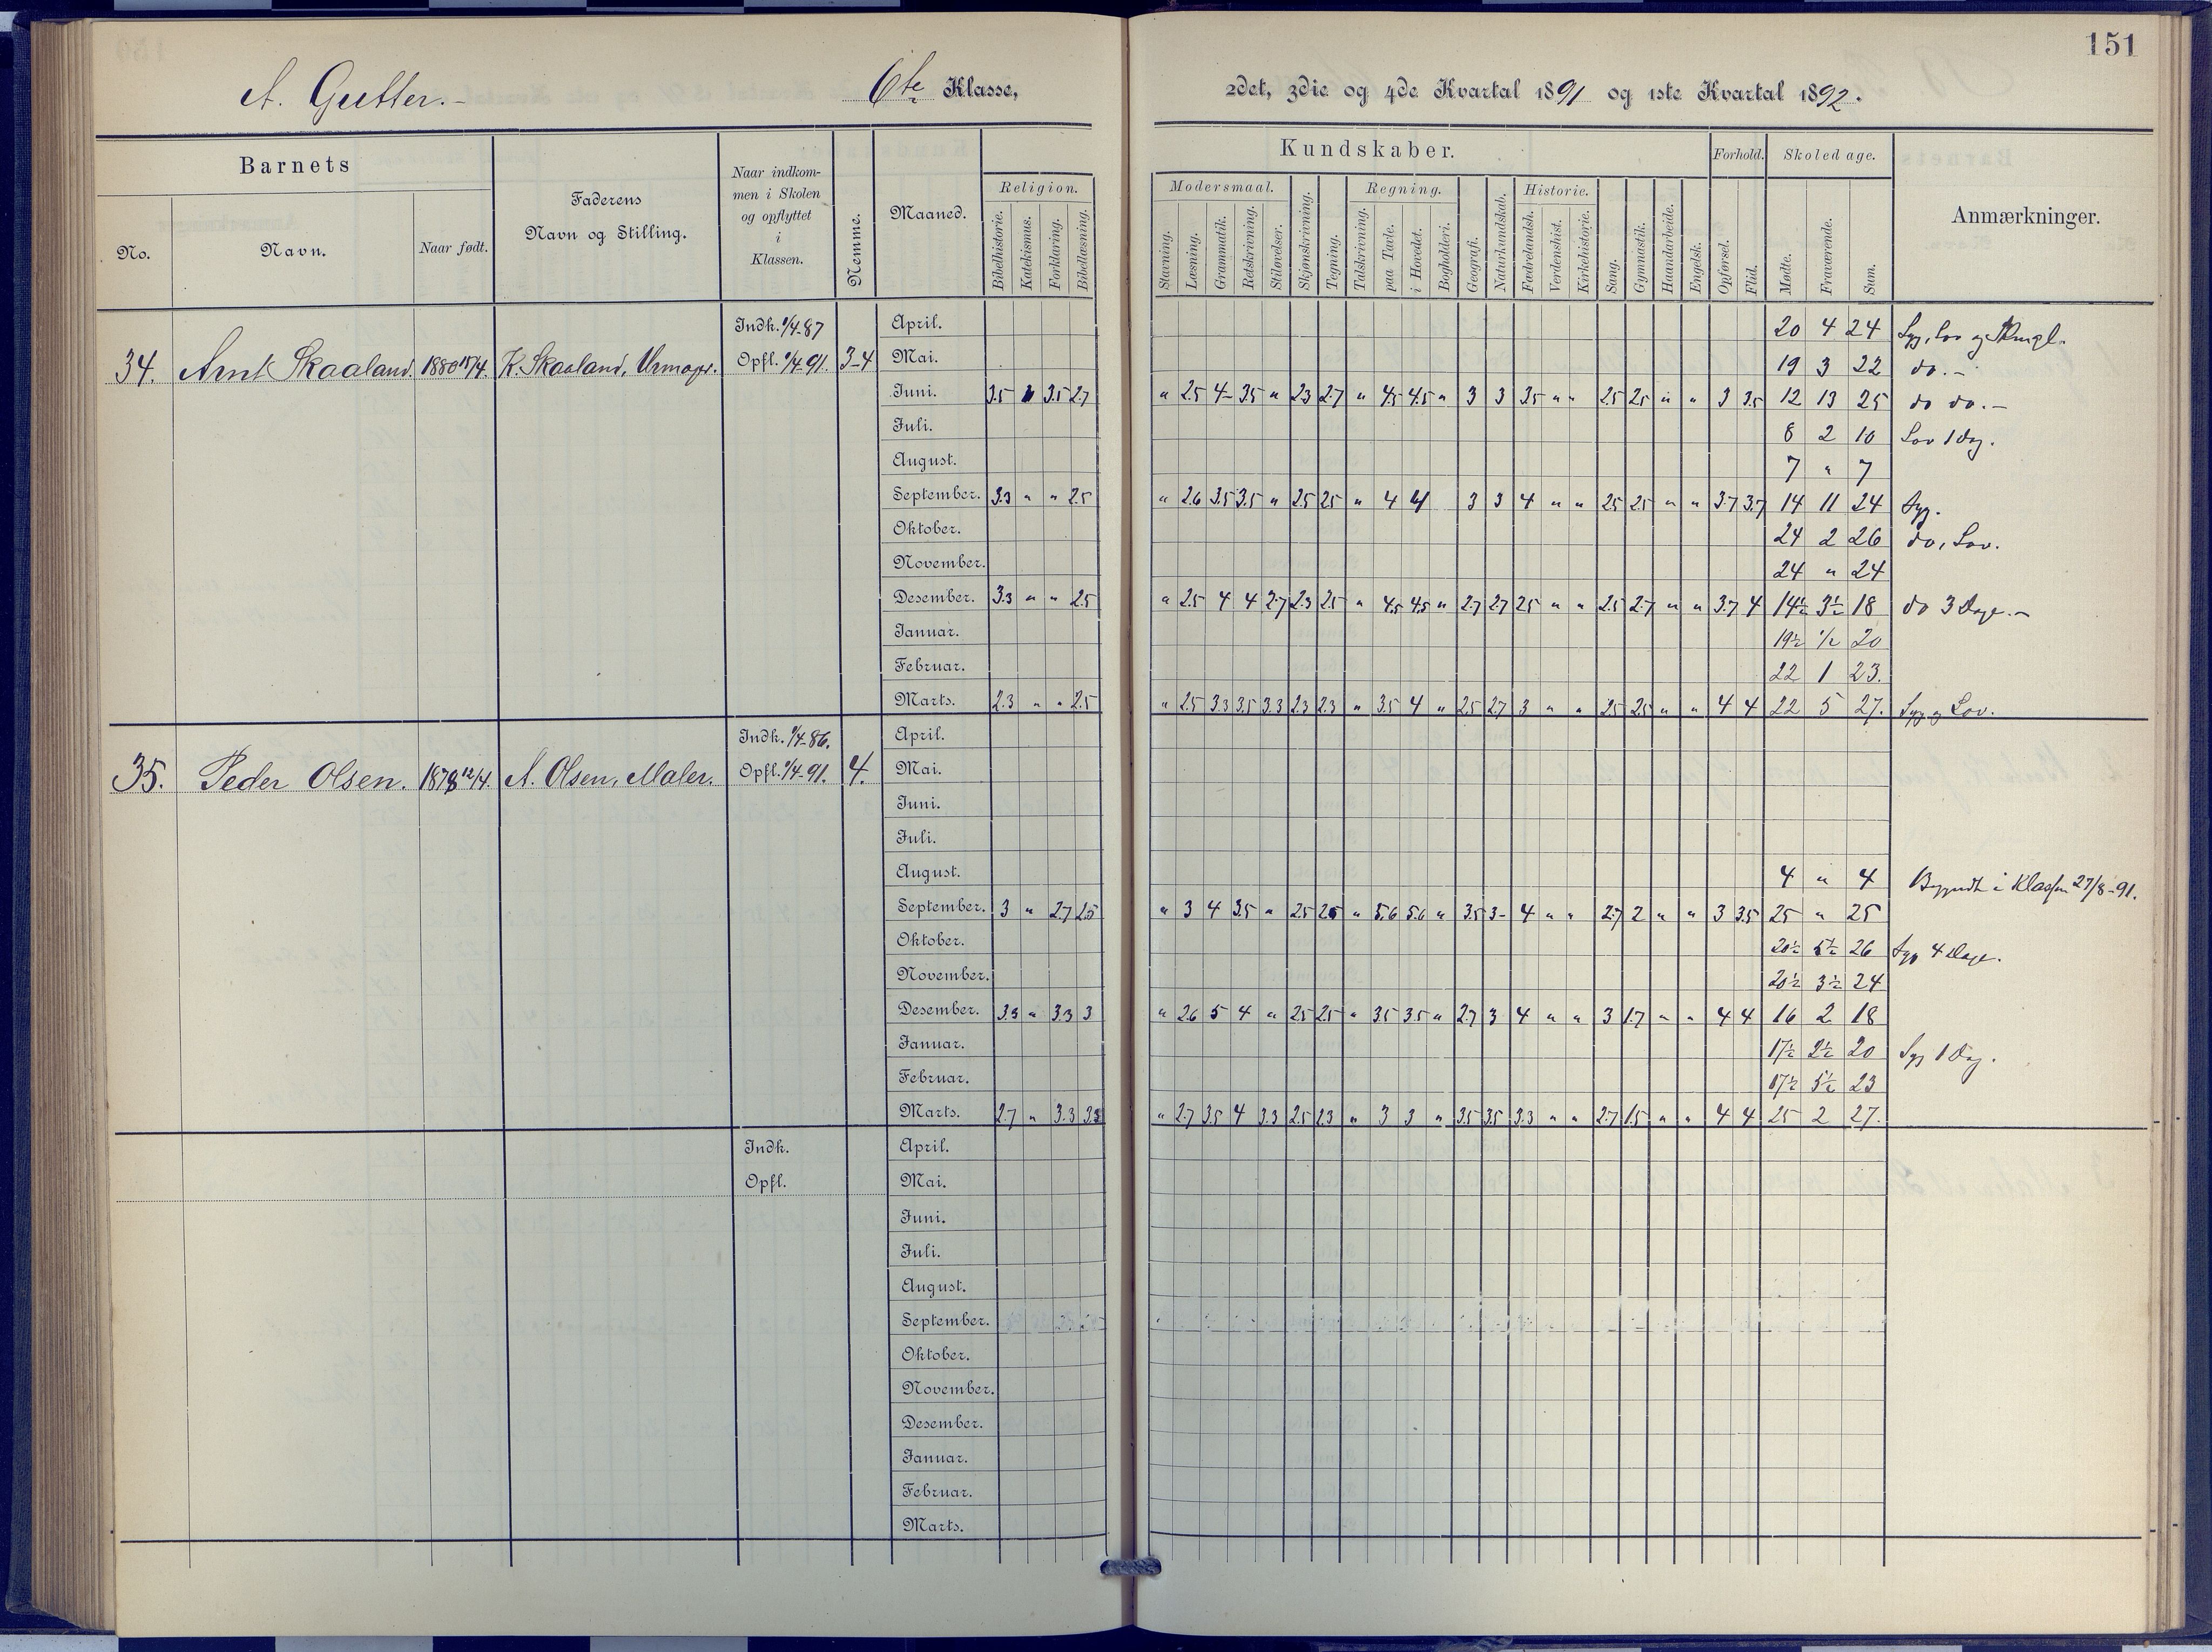 151
A. Gutter.-
6te Klasse,
2det, 3die og 4de Kvartal 1891 og 1ste Kvartal 1892.
Barnets
No.
Navn.
Naar født.
Faderens
Navn og Stilling.
Naar indkom-
men i Skolen
og opflyttet
i
Klassen.
Nemme.
Maaned.
Kundskaber.
Religion.
Bibelhistorie.
Katekismus.
Forklaring.
Bibellæsning.
Modersmaal.
Stavning.
Læsning.
Grammatik.
Retskrivning.
Stiløvelser.
Skjønskrivning.
Tegning.
Regning.
Talskrivning.
paa Tavle.
i Hovedet.
Bogholderi.
Geografi.
Naturkundskab.
Historie.
Fædrelandsh.
Verdenshist.
Kirkehistorie.
Sang.
Gymnastik.
Haandarbeide.
Engelsk.
Forhold.
Opførsel.
Flid.
Skoledage.
Mødte.
Fraværende.
Sum.
Anmærkninger.
34. Arnt Skaaland. 1880 15/4. K. Skaaland, Urmagr. Indk. 1/4-87 Opfl. 1/4-91. 3-4
April. 20 4 24 Syg, Lov og
Mai. 19 3 22 do.-
Juni. 3.5 " 3.5 2.7 " 2.5 4- 3.5 " 2.3 2.7 " 4.5 4.5 " 3 3 3.5 " " 2.5 2.5 " " 3 3.5 12 13 25 do do.-
Juli. 8 2 10 Lov 1 Dag.
August. 7 " 7
September. 3.3 " " 2.5 " 2.6 3.5 3.5 " 2.5 2.5 " 4 4 3 3 4 " " 2.5 2.5 " " 3.7 3.7 14 11 24 Syg.
Oktober. 24 2 26 do, Lov.
November. 24 " 24
Desember. 3.3 " " 2.5 " 2.5 4 4 2.7 2.3 2.5 " 4.5 4.5 " 2.7 2.7 2.5 " " 2.5 2.7 " " 3.7 4 14½ 3½ 18 do 3 Dage.-
Januar. 19½ ½ 20
Februar. 22 1 23.
Marts. 2.3 " " 2.5 " 2.5 3.3 3.5 3.3 2.3 2.3 " 3.5 4 " 2.5 2.7 3 " " 2.5 2.5 " " 4 4 22 5 27. Syg og Lov.
35. Peder Olsen. 1878 12/4. A. Olsen, Maler. Indk. 1/4-86. Opfl. 1/4-91. 4.
April.
Mai.
Juni.
Juli.
August. 4 " 4 Begyndt i Klassen 27/8-91.
September. 3 " 2.7 2.5 " 3 4 3.5 " 2.5 2.5 " 5.6 5.6 " 3.5 3- 4 " " 2.7 2 " " 3 3.5 25 " 25
Oktober. 20½ 5½ 26 Syg 4 Dage.
November. 20½ 3½ 24
Desember. 3.3 " 3.3 3 " 2.6 5 4 " 2.5 2.5 " 3.5 3.5 " 2.7 3 4 " " 3 1.7 " " 4 4 16 2 18
Januar. 17½ 2½ 20 Syg 1 Dag.
Februar. 17½ 5½ 23
Marts. 2.7 " 3.3 3.3 " 2.7 3.5 4 3.3 2.5 2.3 " 3 3 " 3.5 3.5 3.3 " " 2.7 1.5 " " 4 4 25 2 27.
Indk.
Opfl.
April.
Mai.
Juni.
Juli.
August.
September.
Oktober.
November.
Desember.
Januar.
Februar.
Marts.